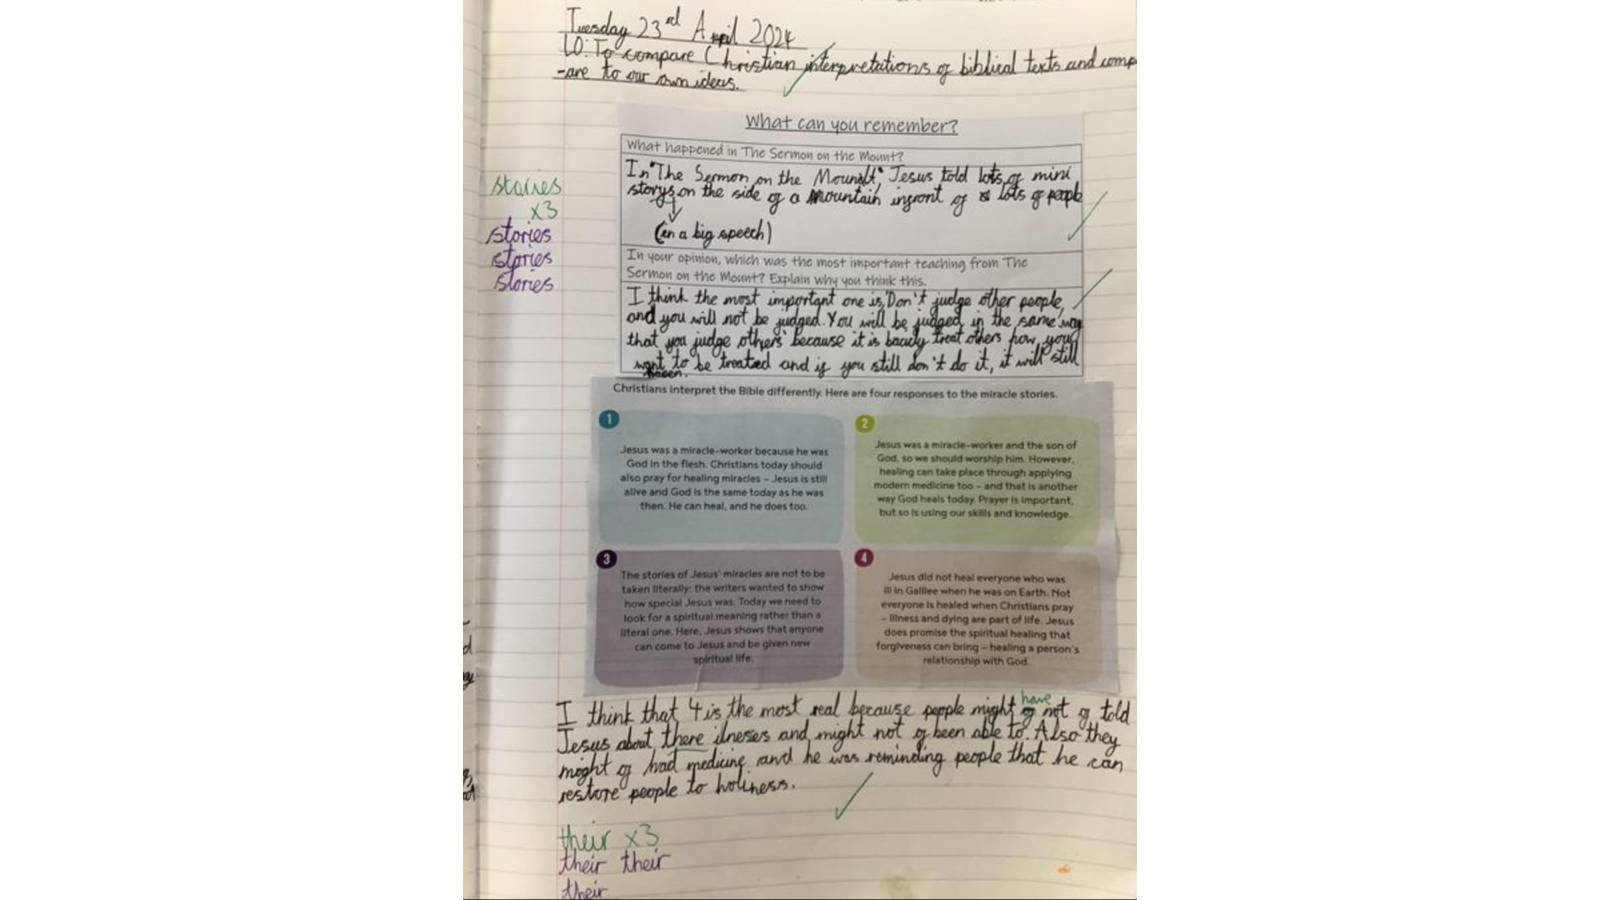 Tuesday 23rd April 2024
LO: To compare Christian interpretations of biblical texts and comp
-are to our own ideas.
What can you remember?
What happened in The Sermon on the Mount?
In "The Sermon on the Mount", Jesus told lots of mini
storys on the side of a mountain infront of lots of people
(in a big speech)
stories
x3
stories
stories
stories
In your opinion, which was the most important teaching from The
Sermon on the Mount? Explain why you think this.
I think the most important one is, 'Don't judge other people,
and you will not be judged. You will be judged in the same way
that you judge others' because it is treat others how you
want to be treated and if you still don't do it, it will still
Christians interpret the Bible differently. Here are four responses to the miracle stories.
1
Jesus was a miracle-worker because he was
God in the flesh. Christians today should
also pray for healing miracles – Jesus is still
alive and God is the same today as he was
then. He can heal, and he does too.
2
Jesus was a miracle-worker and the son of
God, so we should worship him. However,
healing can take place through applying
modern medicine too – and that is another
way God heals today. Prayer is important,
but so is using our skills and knowledge.
3
The stories of Jesus' miracles are not to be
taken literally: the writers wanted to show
how special Jesus was. Today we need to
look for a spiritual meaning rather than a
literal one. Here, Jesus shows that anyone
can come to Jesus and be given new
spiritual life.
4
Jesus did not heal everyone who was
ill in Galilee when he was on Earth. Not
everyone is healed when Christians pray
– illness and dying are part of life. Jesus
does promise the spiritual healing that
forgiveness can bring – healing a person's
relationship with God.
have
I think that 4 is the most real because people might of not of told
Jesus about there ilneses and might not of been able to. Also they
might of had medicine and he was reminding people that he can
restore people to holiness.
their x3
their their
their